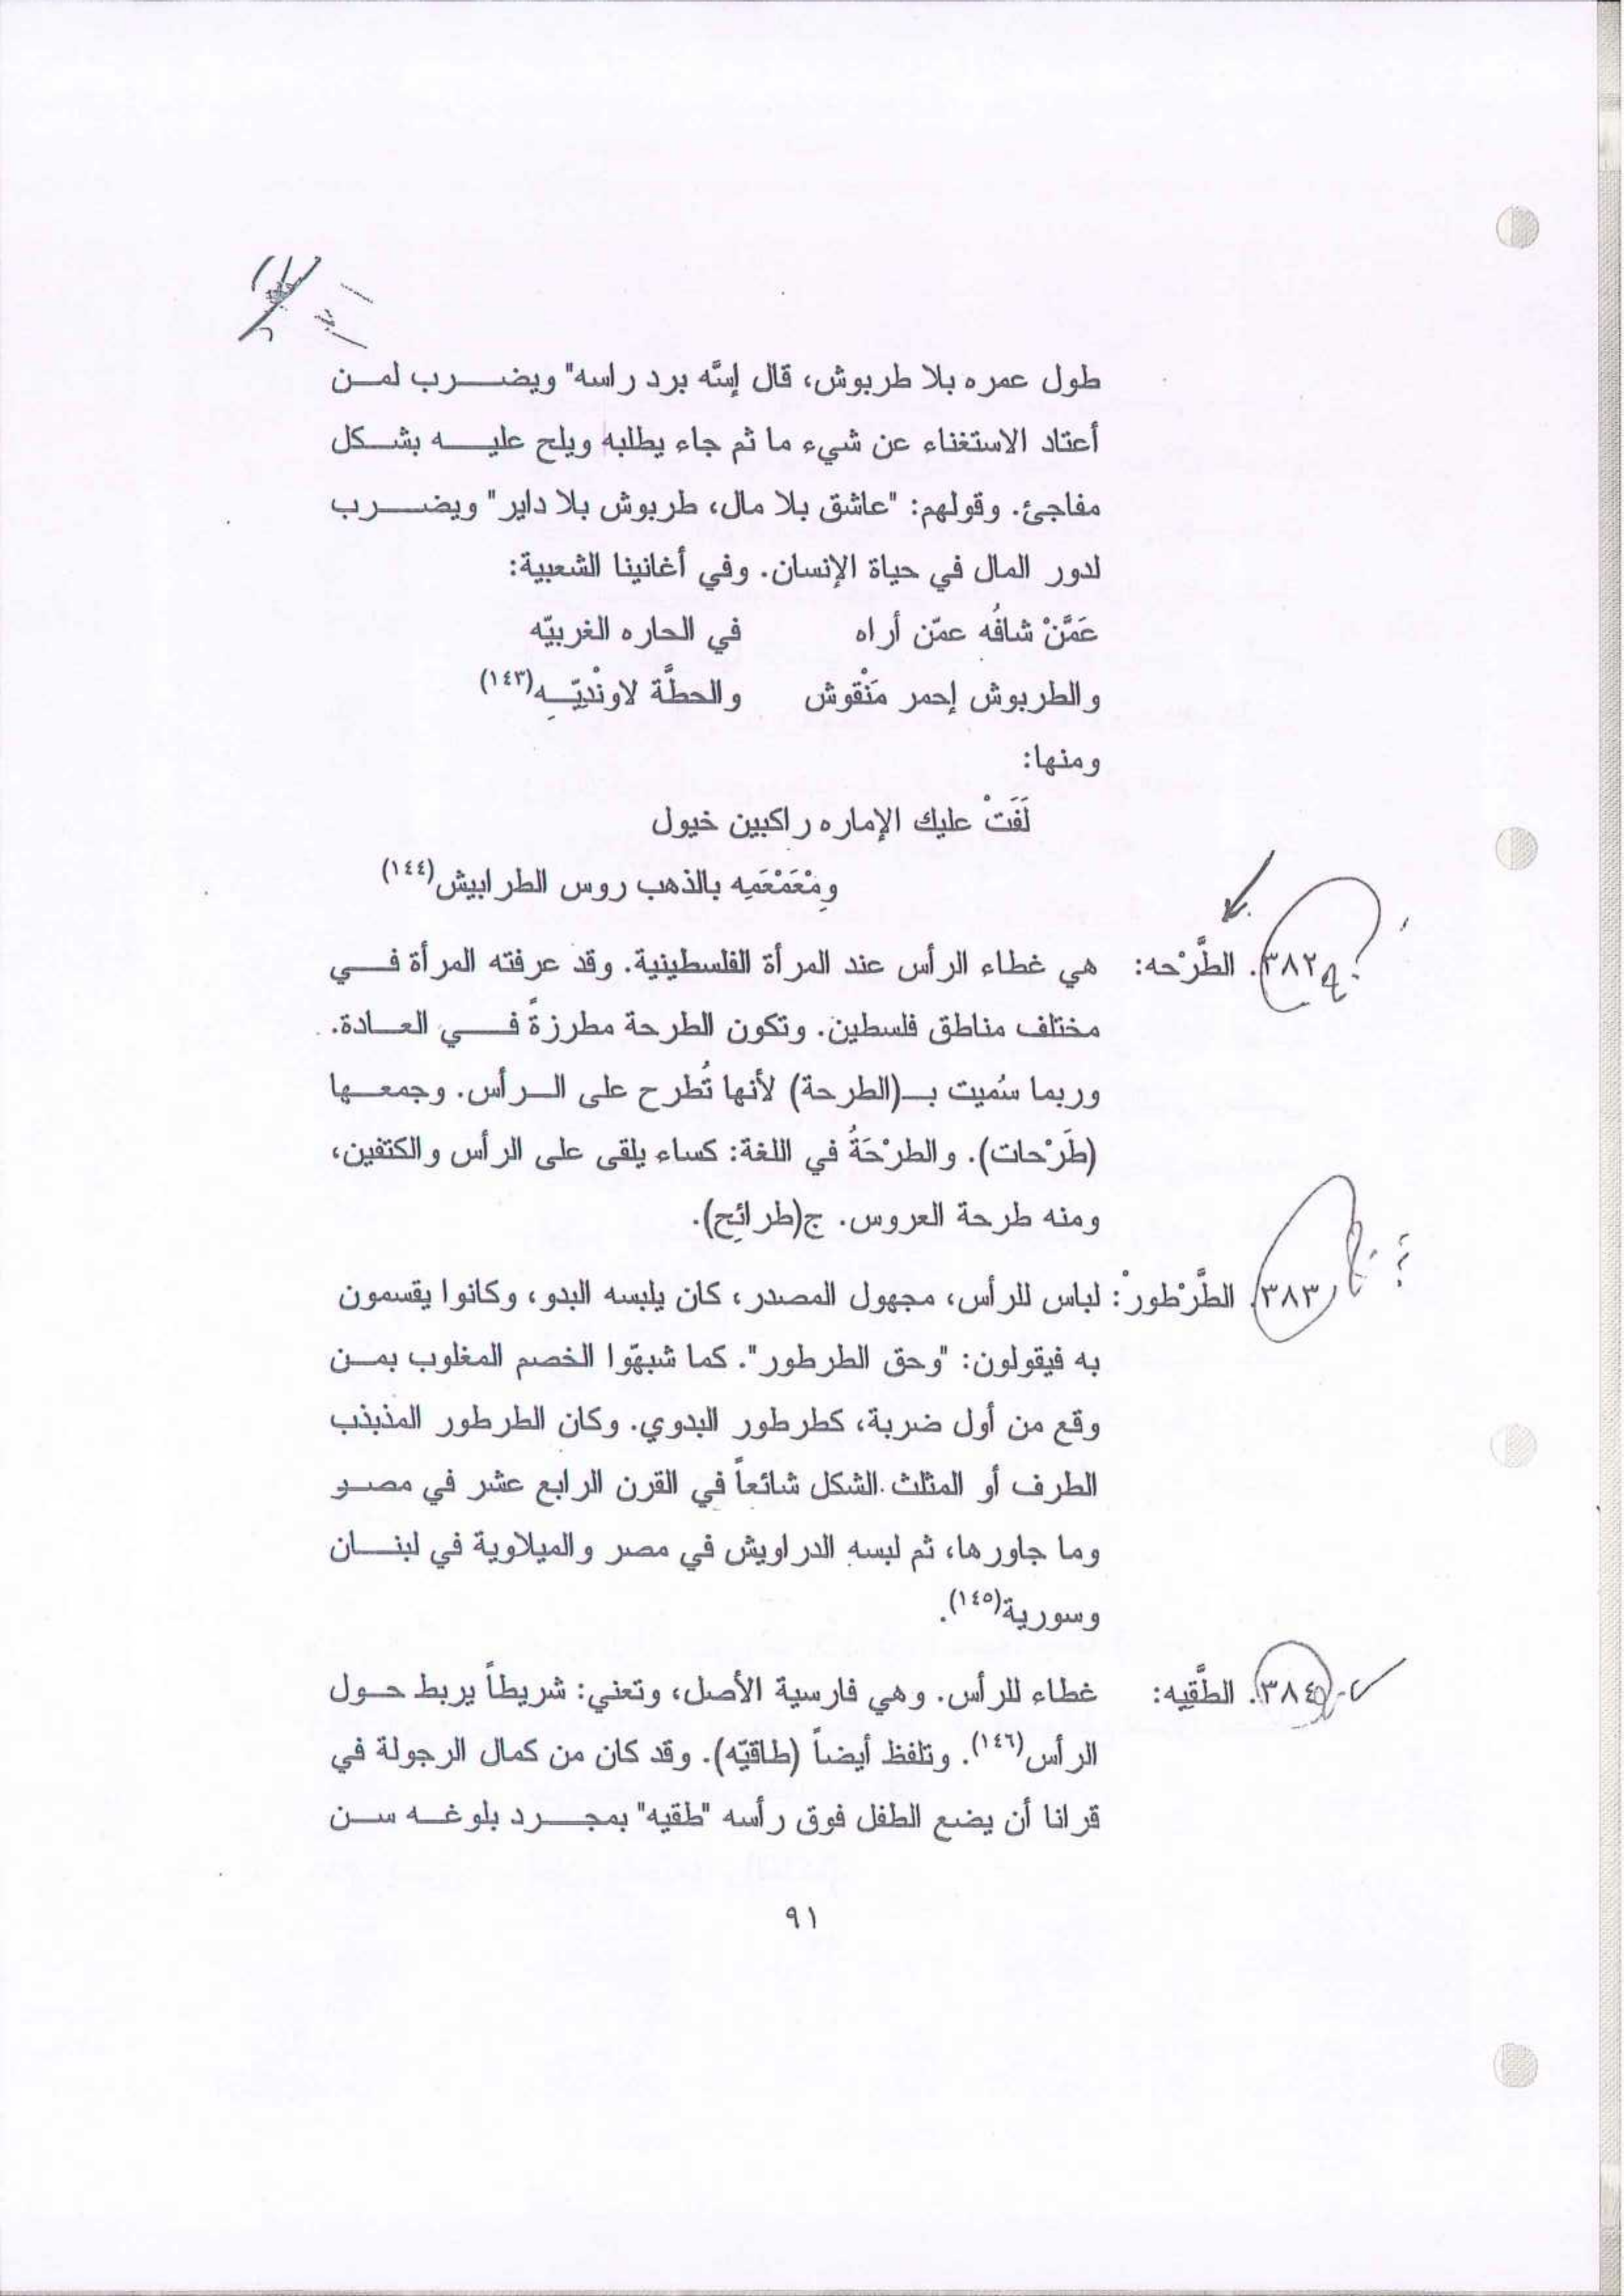 طول عمره بلا طربوش، قال إسَّه برد راسه" ويضرب لمن
أعتاد الاستغناء عن شيء ما ثم جاء يطلبه ويلح عليه بشكل
مفاجئ. وقولهم: "عاشق بلا مال، طربوش بلا داير" ويضرب
لدور المال في حياة الإنسان. وفي أغانينا الشعبية:
عَمَّنْ شافُه عمّن أراه في الحاره الغربيّه
والطربوش إحمر مَنْقوش والحطَّة لاونْدِيّه(١٤٣)
ومنها:
لَفَتْ عليك الإماره راكبين خيول
ومْعَمْعَمِه بالذهب روس الطرابيش(١٤٤)
٣٨٢. الطَّرْحه: هي غطاء الرأس عند المرأة الفلسطينية. وقد عرفته المرأة في
مختلف مناطق فلسطين. وتكون الطرحة مطرزةً في العادة.
وربما سُميت بـ(الطرحة) لأنها تُطرح على الرأس. وجمعها
(طَرْحات). والطرْحَةُ في اللغة: كساء يلقى على الرأس والكتفين،
ومنه طرحة العروس. ج(طرائِح).
٣٨٣. الطَّرْطورْ: لباس للرأس، مجهول المصدر، كان يلبسه البدو، وكانوا يقسمون
به فيقولون: "وحق الطرطور". كما شبهّوا الخصم المغلوب بمن
وقع من أول ضربة، كطرطور البدوي. وكان الطرطور المذبذب
الطرف أو المثلث الشكل شائعاً في القرن الرابع عشر في مصر
وما جاورها، ثم لبسه الدراويش في مصر والميلاوية في لبنان
وسورية(١٤٥).
٣٨٤. الطَّقيه: غطاء للرأس. وهي فارسية الأصل، وتعني: شريطاً يربط حول
الرأس(١٤٦). وتلفظ أيضاً (طاقيّه). وقد كان من كمال الرجولة في
قرانا أن يضع الطفل فوق رأسه "طقيه" بمجرد بلوغه سن
٩١